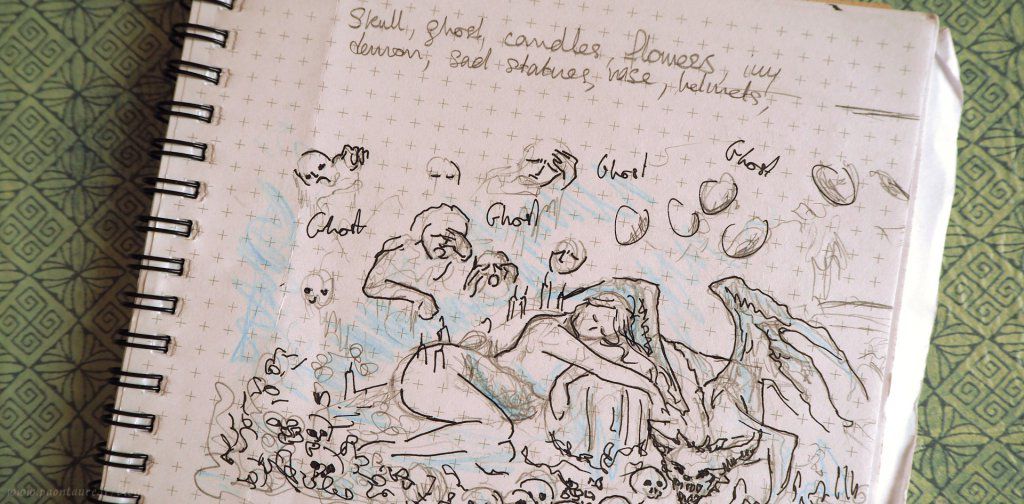 Skull, ghost, candles, flowers, ivy
demon, sad statues, vase, helmets,
Ghost
Ghost
Ghost
Ghost
www.paontaure